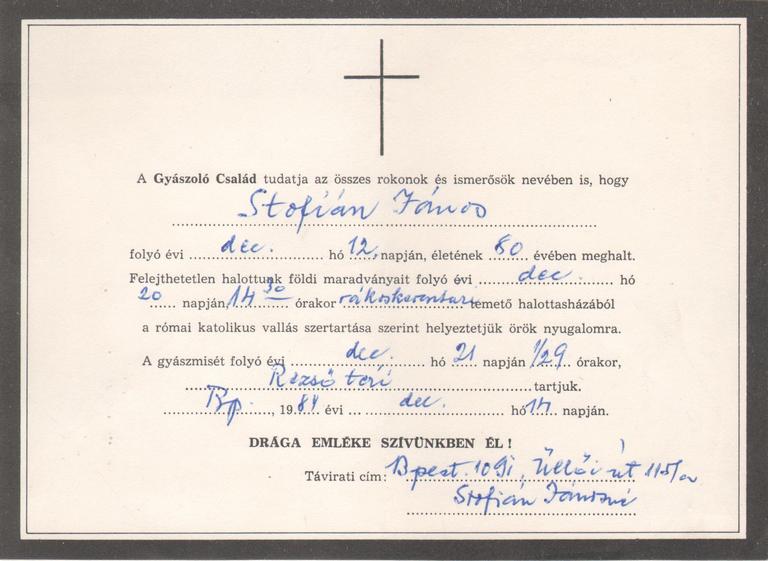 A Gyászoló Család tudatja az összes rokonok és ismerősök nevében is, hogy
Stofián János
folyó évi dec. hó 12. napján, életének 80 évében meghalt.
Felejthetetlen halottunk földi maradványait folyó évi dec. hó
20 napján 14 30 órakor rákoskeresturi temető halottasházából
a római katolikus vallás szertartása szerint helyeztetjük örök nyugalomra.
A gyászmisét folyó évi dec. hó 21 napján 1/29 órakor,
Rezső téri tartjuk.
Bp., 1984 évi dec. hó 14 napján.
DRÁGA EMLÉKE SZÍVÜNKBEN ÉL!
Távirati cím: Bpest. 1091, Üllői út 115/a
Stofián Jánosné